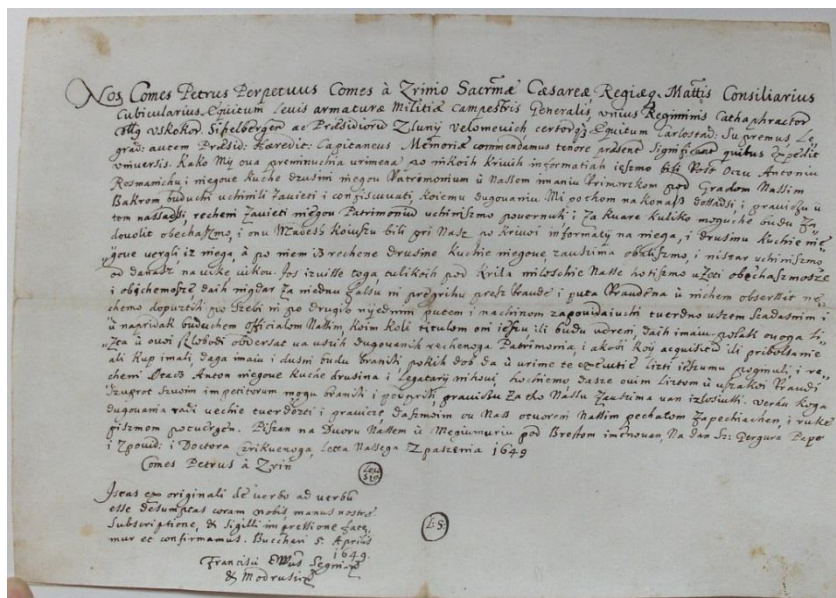 Nos Comes Petrus Perpetuus Comes à Zrinio Sacrmæ Cæsareæ, Regiæq. Mattis Consiliarius
Cubicularius, Equitum levis armaturæ Militiæ Campestris Generalis vnius Regiminis Cathaphractor
vskokor. Sihelbergen ac Præsidioru Zluny velomevich certorqz Equitum Carlostad: Supremus, Le,
grad: autem Præsid: Hæredit: Capitaneus Memoriæ commendamus tenore præsent Significant quibus expedit
vniversis. Kako My ova preminuchia urimena po nikoih krivih informatiah iesmo bili Poto Otcu Antoniu
Rosmanichu i niegove kuche drusini niegov Patrimonium u Nassem imaniu Primorzkom pod Gradom Nassim
Bakrom buduchi uchinili Zavieti i confiscuvati, koiemu dugovaniu. Mi pothom na konaz dossadsi, i praviczu u
tom nassadsi, recheni Zavieti niegov Patrimoniu uchinismo povernuti; i za kuare kuliko moguche budu Za,
dovolit obechasmo, i onu
niega, i drusinu kuchie nie,
gove vergli iz niega, à po niem iz rechene drusine kuchie niegove, zauzima obatismo, i nistar uchinismo
od danasz na vike vikov. Jos izuisse toga tulikoih pod krila miloschie Nasse hotismo uzeti obechasmosze
i obechemosze, daih nigdar za niednu falsu ni progrihu prez Prave i puta Pravdena u nichem obsersset ne,
chemo dopuztiti po Zebi ni po drugih nijednim putem i machinom zapovidaiuchi tuerdno vszem Szadasnim i
u napridak buduchem officialom Nassim, koim koli titulom oni iessu ili budu udreni, daih imaiu
u ovoi szlobodi obdersat ua vszih dugovanih rechenoga Patrimonia, i akobi koy acquisitu ili pribolsanie
ali kup imali, daga imaiu i dusni budu braniti pokih dob da ù urime te
iessmu poginuli, i re,
cheni Otacz Anton niegove kuche drusina i legatary nihovi, hochiemo, dasze ovim Lisztom u vszakoi Pravdi
szuprot szvoim impetitorom mogu braniti i
praviczu za tho Nassu Zauzima van izlosiuti. Verdn koga
dugovania radi vechie tuerdozti i pravicze, daszmoim ou Nass otvoreni Nassim pechatom zapechiachen, i ruke
piszmom potuergen. Piszan na Dvoru Nassem ù Megiumuriu pod Brestom imenovan, Na dan Sz: Gergura Pape
i Zpovid: i Doctora Czrikvenoga, Letta Nassega Zpaszenia 1649
Comes Petrus à Zrin
Locus Sig:
Istas ex originali de verbo ad verbu
esse desumptas coram nobis, manus nostræ
Subscriptione, & sigilli impressione fate,
mur et confirmamus. Buccari 5. Aprilis
1649.
L: S:
Francisci Eppus Segnien
& Modrusien